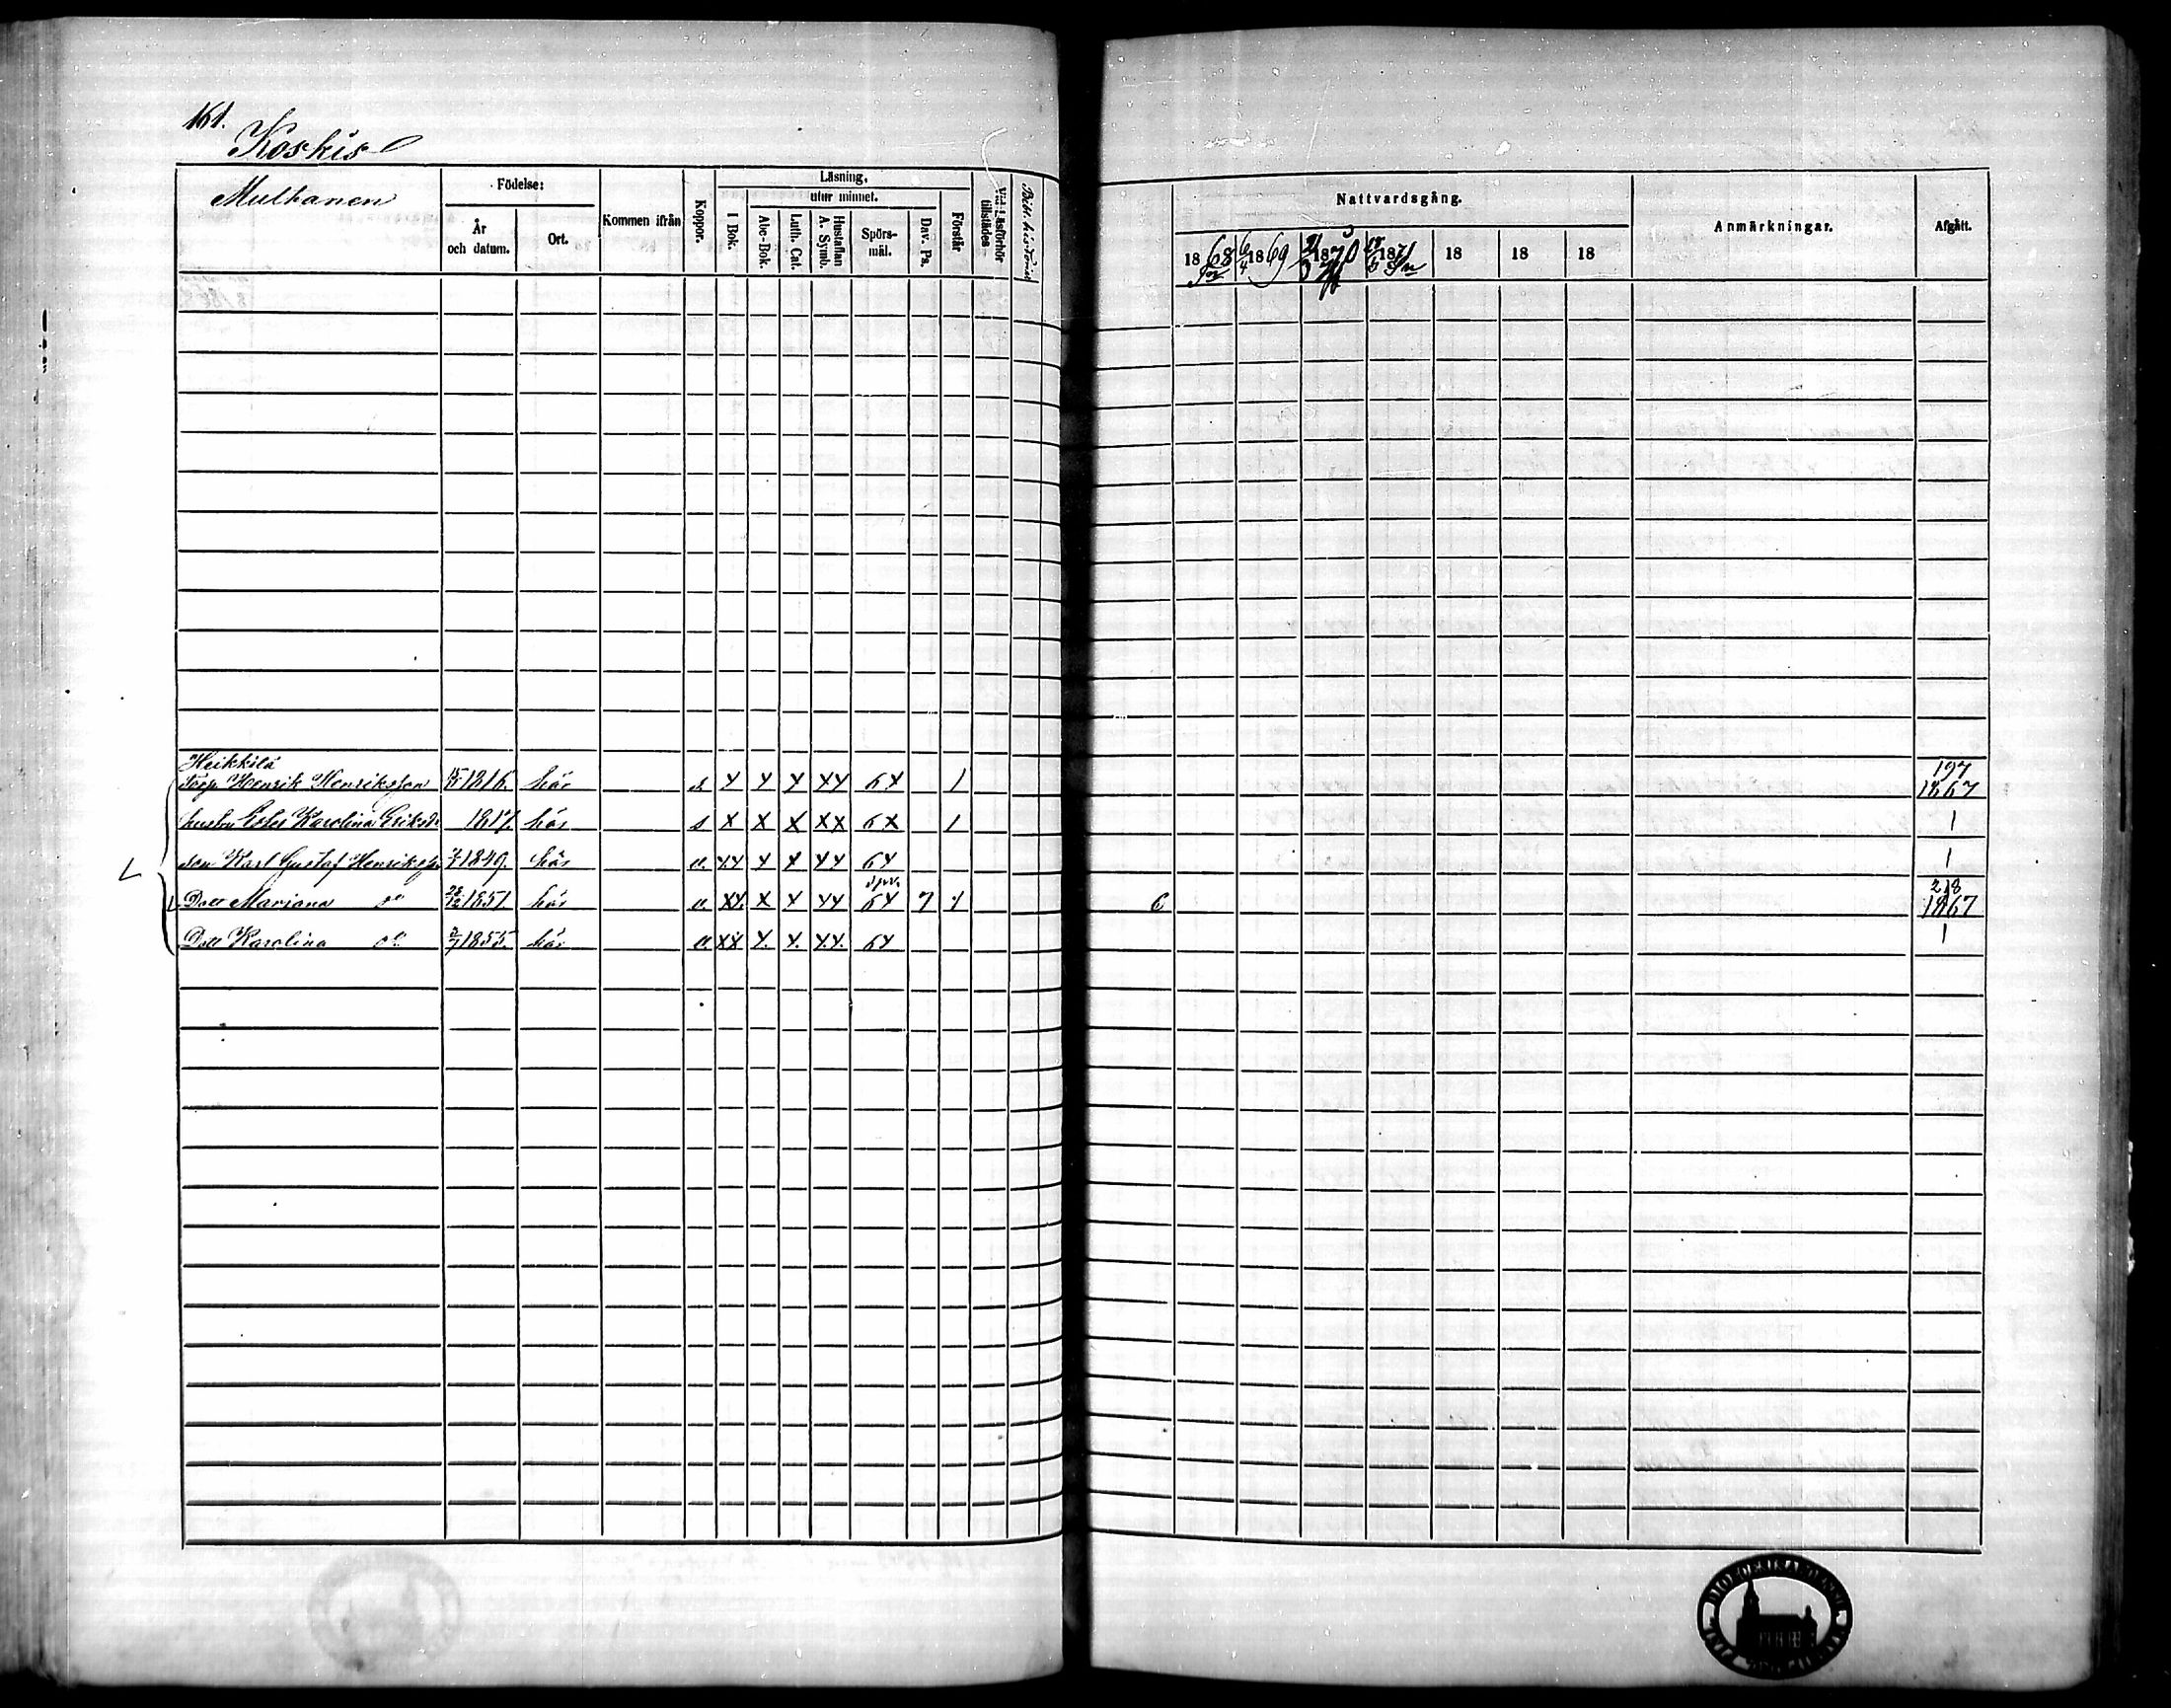 161.
Koskis
Multanen
Födelse:
År och datum.
Ort.
Kommen ifrån
Koppor.
Läsning,
utur minnet.
I Bok.
Abc-Bok.
Luth. Cat.
Hustaflan A. Symb.
Spörs-mål.
Dav. Ps.
Förstår
Vid Läsförhör tillstädes
Bibl. historia
Nattvardsgång.
1868 6/4 1869 1870 1871 18 18 18
Anmärkningar.
Afgått.
Heikkilä
Torp. Henrik Henriksson 1816. här x x x xx 6x 1 197 1867
hustru Karolina Eriksdr 1817. här s x x x xx 6x 1 1
son Karl Gustaf Henriksson 1849. här v. xx x x xx 6x 1
Dott Mariana do 28/12 1851. här v. xx x x xx 6x 7 1 6 218 1867
Dott Karolina do 1855. här v. xx x. x. xx. 6x 1